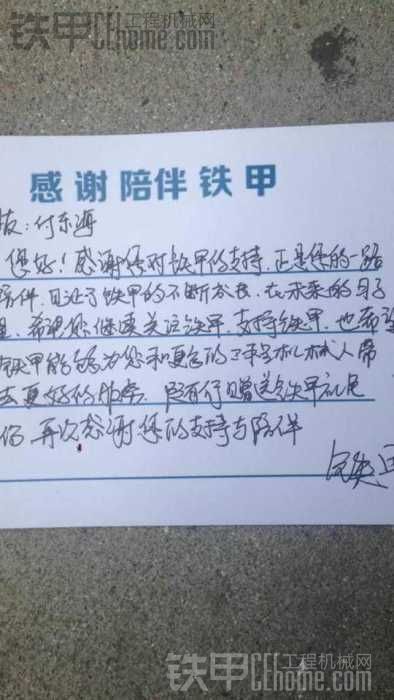 铁甲 工程机械网
CEhome.com
感谢陪伴铁甲
友:付东海
您好!感谢您对铁甲的支持,正是您的一路
陪伴,见证了铁甲的不断成长,在未来的日子
里,希望您继续关注铁甲,支持铁甲,也希望
铁甲能够为您和更多的工程机械人带
去更好的服务。
再次感谢您的支持与陪伴
铁甲 工程机械网
CEhome.com